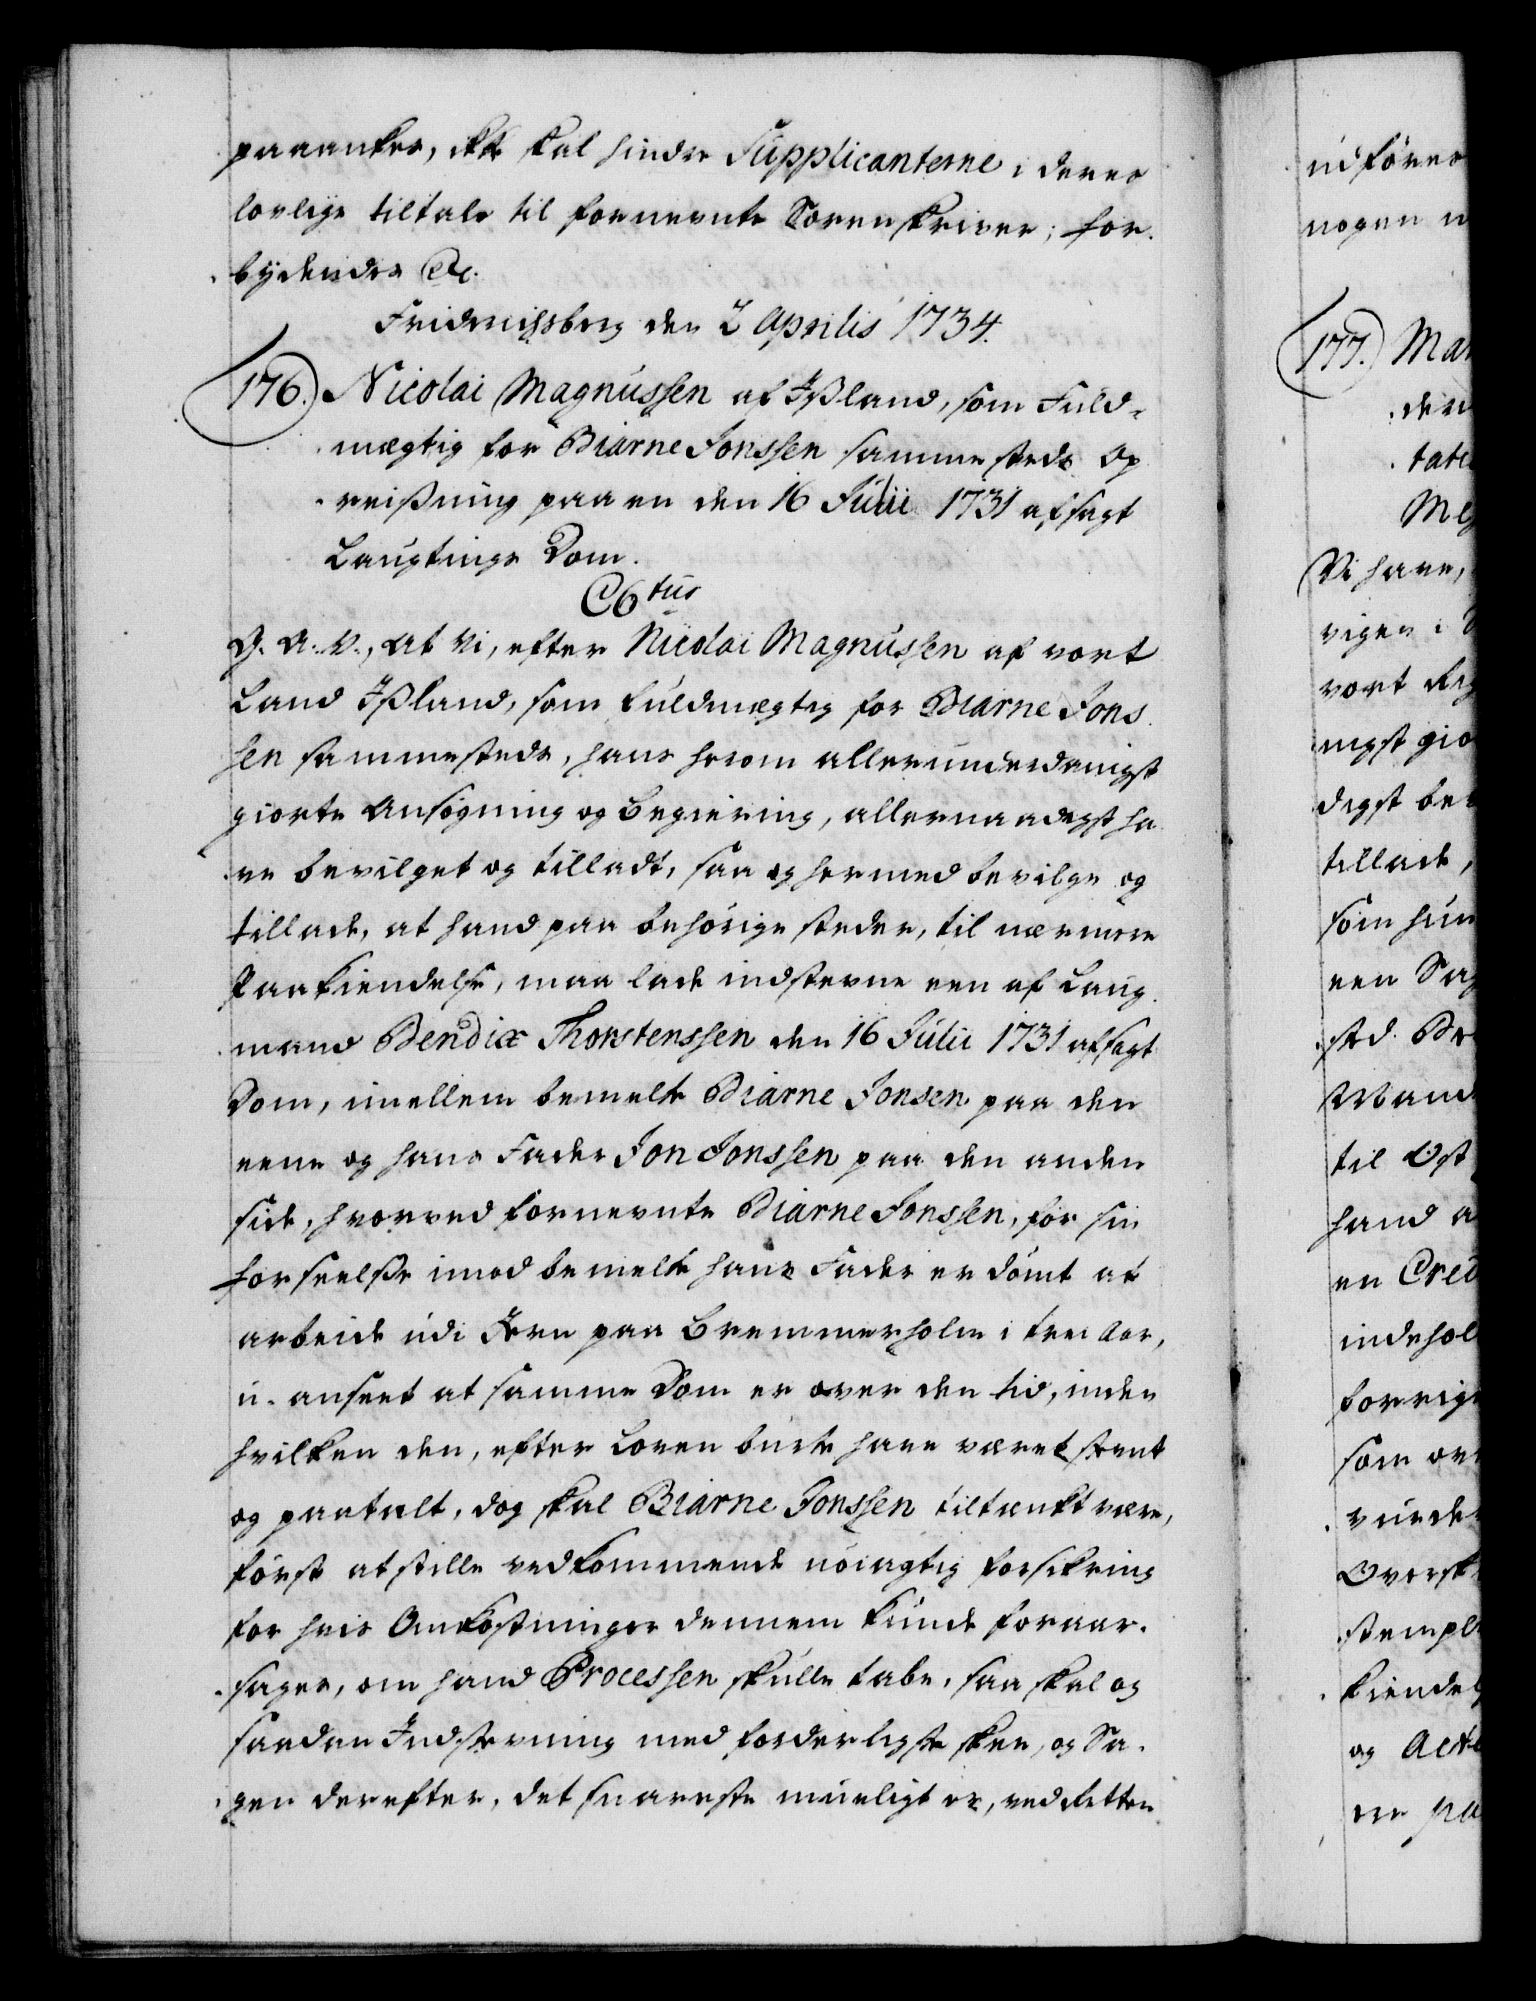 paaankes, ikke skal hindre Supplicanterne i deres
lovlige tiltale til fornevnte Sorenskriver; for-
bydendes &c.
Friderichsberg den 2 Aprilis 1734.
176. Nicolai Magnussen af Ißland, som Fuld-
mægtig for Biarne Jonssen sammesteds Op
reisning paa en den 16 Julii 1731 afsagt
Laugtings Dom.
C6tus
G. A. V., at vi, efter Nicolai Magnussen af vort
Land Ißland, som fuldmægtig for Biarne Jons-
sen sammesteds, hans herom allerunderdanigst
giorte Ansøgning og Begiering, allernaadigst ha-
ve bevilget og tilladt, saa og hermed bevilge og
tillade, at hand paa behørige steder, til nærmere
Paakiendelse, maa lade indstevne een af Laug-
mand Bendix Thorstenssen den 16 Julii 1731 afsagt
Dom, imellem bemelte Biarne Jonsen paa den
eene og hans Fader Jon Jonssen paa den anden
side, hvorved fornevnte Biarne Jonssen, for sin
forseelse imod bemelte hans Fader er dømt at
arbeide udi Jern paa Bremmerholm i trei Aar,
u-anseet at samme Dom er over den tid, inden
hvilken den, efter Loven burte have været stevnt
og paatalt, dog skal Biarne Jonssen tiltænkt være,
først at stille vedkommende nøiagtig forsikring
for hvis Omkostninger dennem kunde foraar-
sages, om hand Processen skulle tabe, saa skal og
saadan Indstevning med forderligste skee, og Sa-
gen derefter, det snareste mueligt er, ved Retten
udføres
nogen
177. Mar
den
tate
Vi have,
vigen i
vort Rig
nigst gio
digst be
tillade,
som hun
een Sag
Mand
til Ost
hand a
en Cred
indehol
forrige
som ov
vurde
Oversk
stemple
kiendel
og Acte